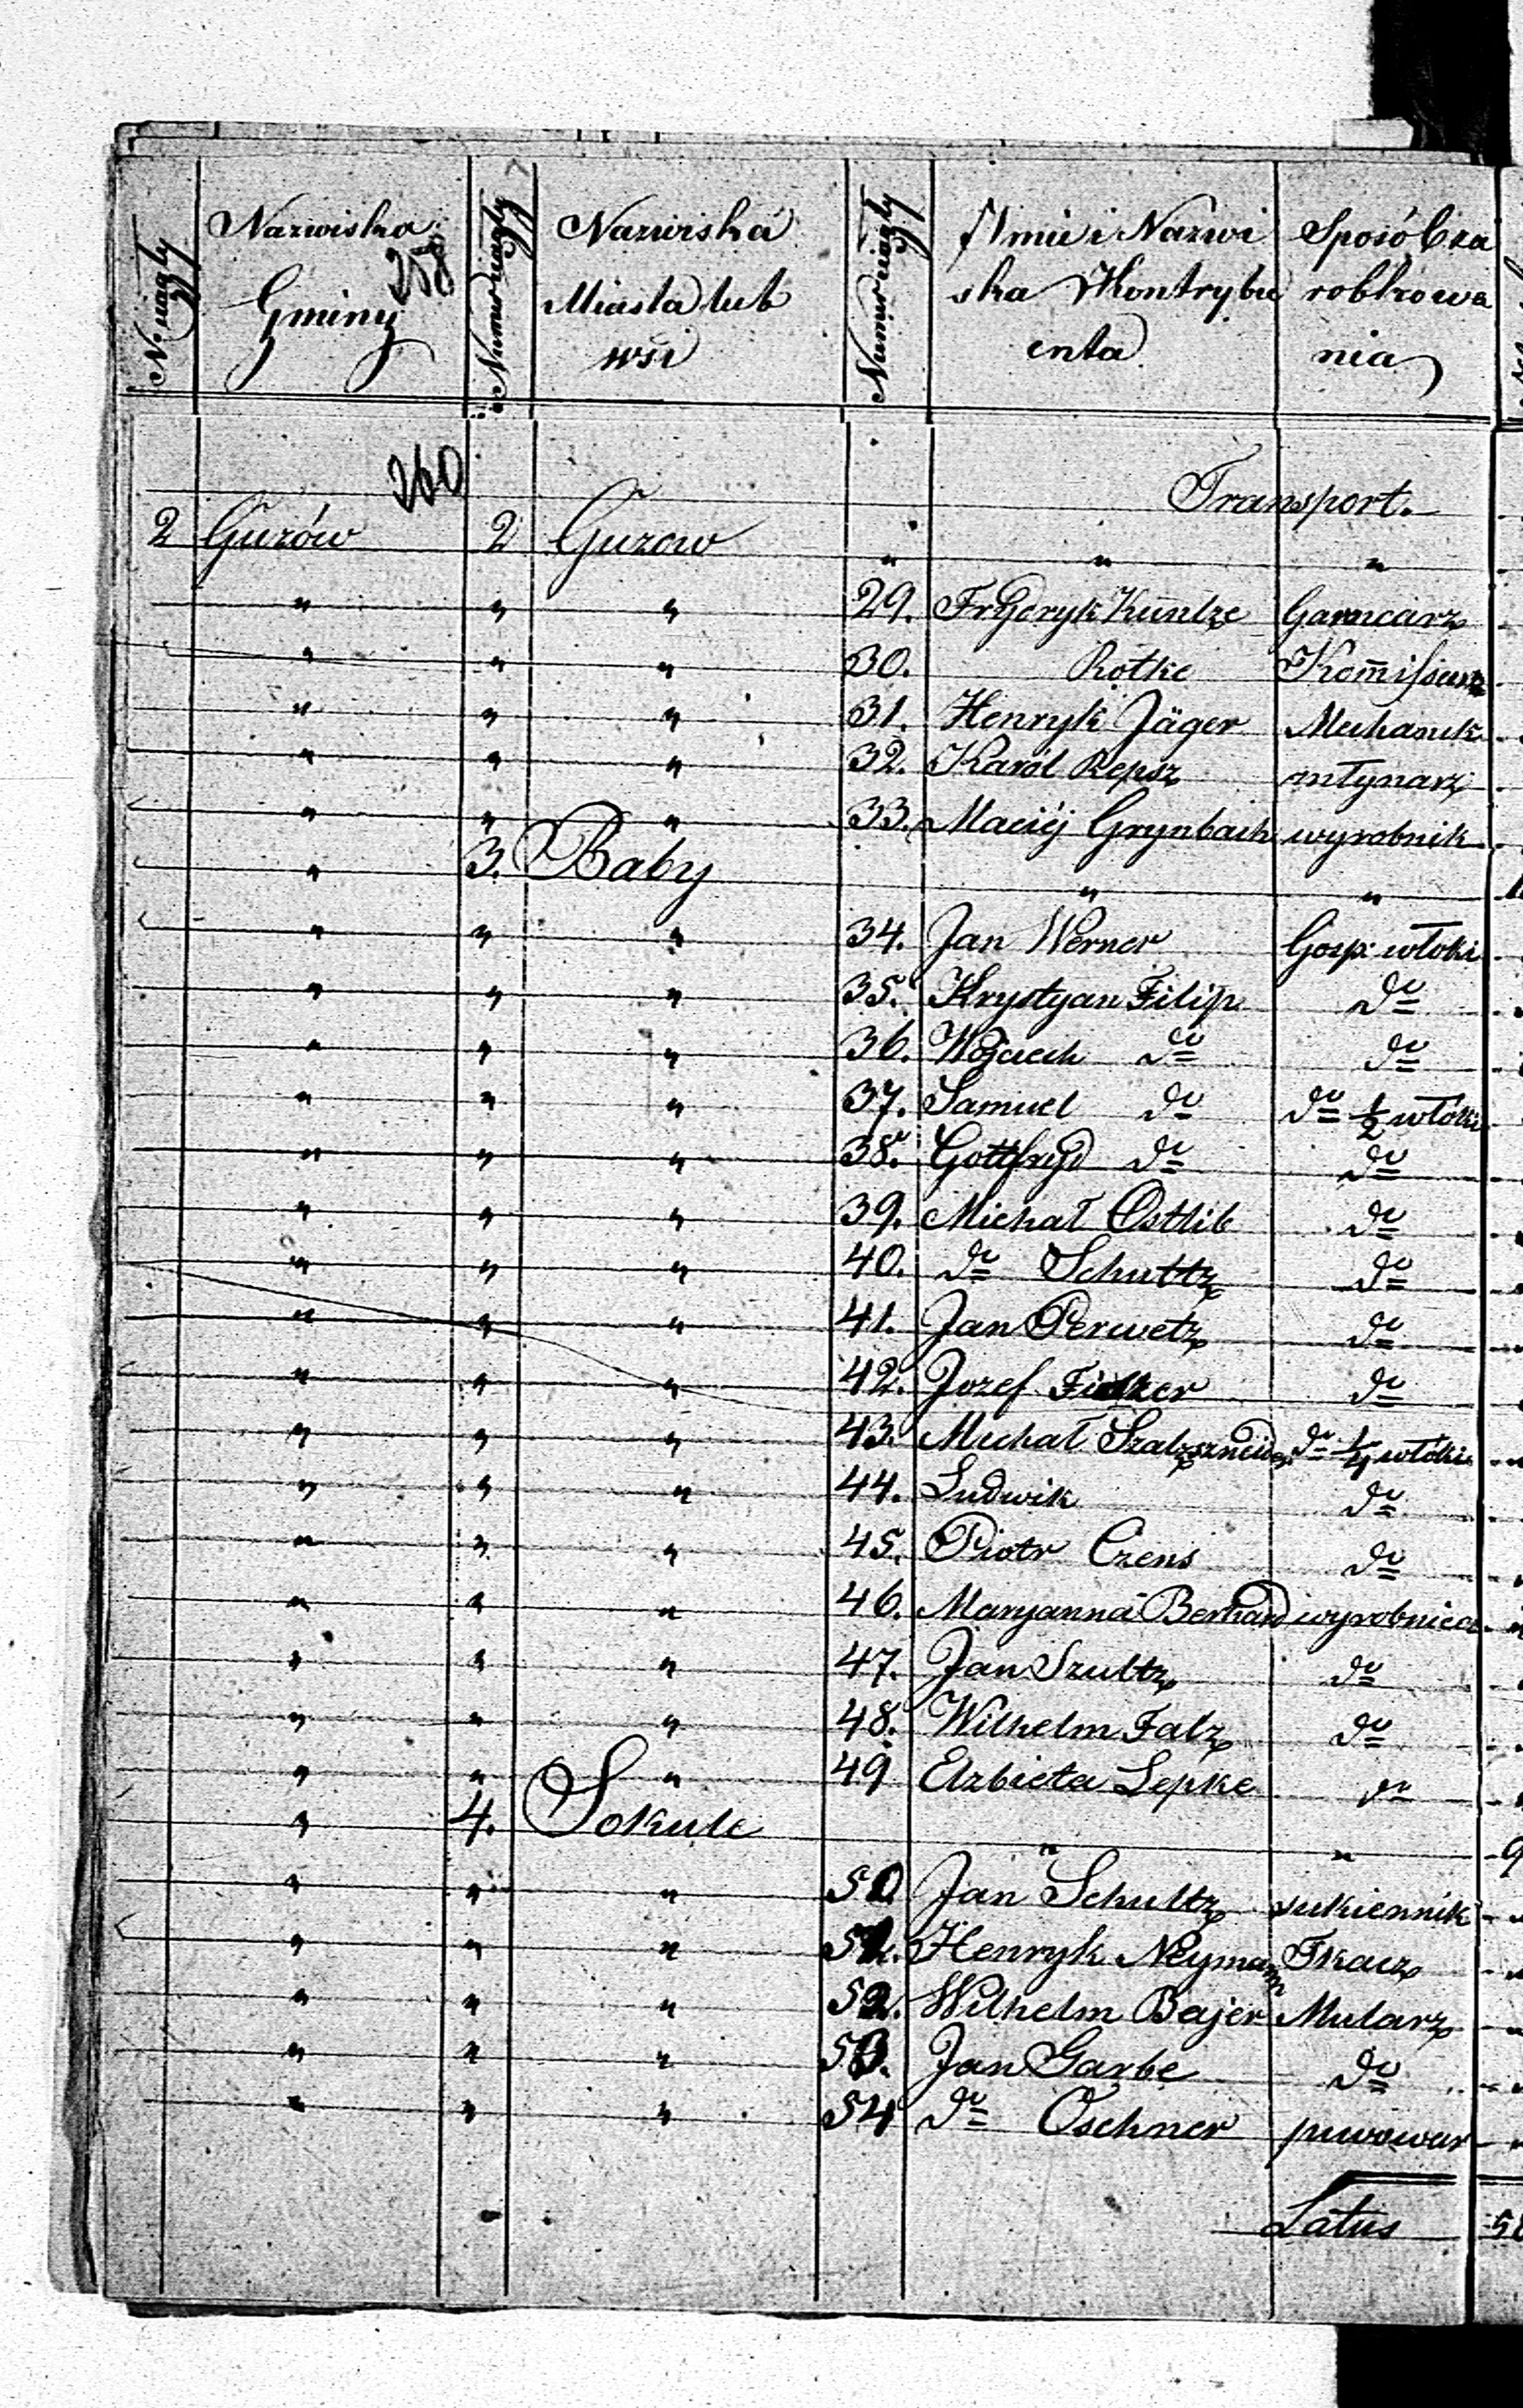 N. ciągły
Nazwiska
Gminy
258
Numer ciągły
Nazwiska
Miasta lub
wsi
Numer ciągły
Imie i Nazwi
ska Kontrybu
enta
Sposób za
robkowa
nia
260
Transport.
2 Guzów 2 Guzow " " "
" " " 29. Fryderyk Kuntze Garncarz
" " " 30. Rotke Kom̅issarz
" " " 31. Henryk Jäger Mechanik
" " " 32. Karol Repsz młynarz
" " " 33. Maciéj Grynbach wyrobnik
" 3. Baby " "
" " " 34. Jan Werner Gosp. włoki
" " " 35. Krystyan Filip do
" " " 36. Wojciech do do
" " " 37. Samuel do do 1/2 włóki
" " " 38. Gottfryd do do
" " " 39. Michał Ostlib do
" " " 40. do Schultz do
" " " 41. Jan Perwetz do
" " " 42. Jozef do
" " " 43. Michał Szalzszneider do 1/4 włóki
" " " 44. Ludwik do
" " " 45. Piotr Czens do
" " " 46. Maryanna Berhard wyrobnica
" " " 47. Jan Szultz do
" " " 48. Wilhelm Falz do
" " " 49 Elzbieta Lepke do
" 4. Sokule " "
" " " 50 Jan Schultz sukiennik
" " " 51. Henryk Neymann Tkacz
" " " 52. Wilhelm Bajer Mularz
" " " 53. Jan Garbe do
" " " 54 do Oschner piwowar
Latus